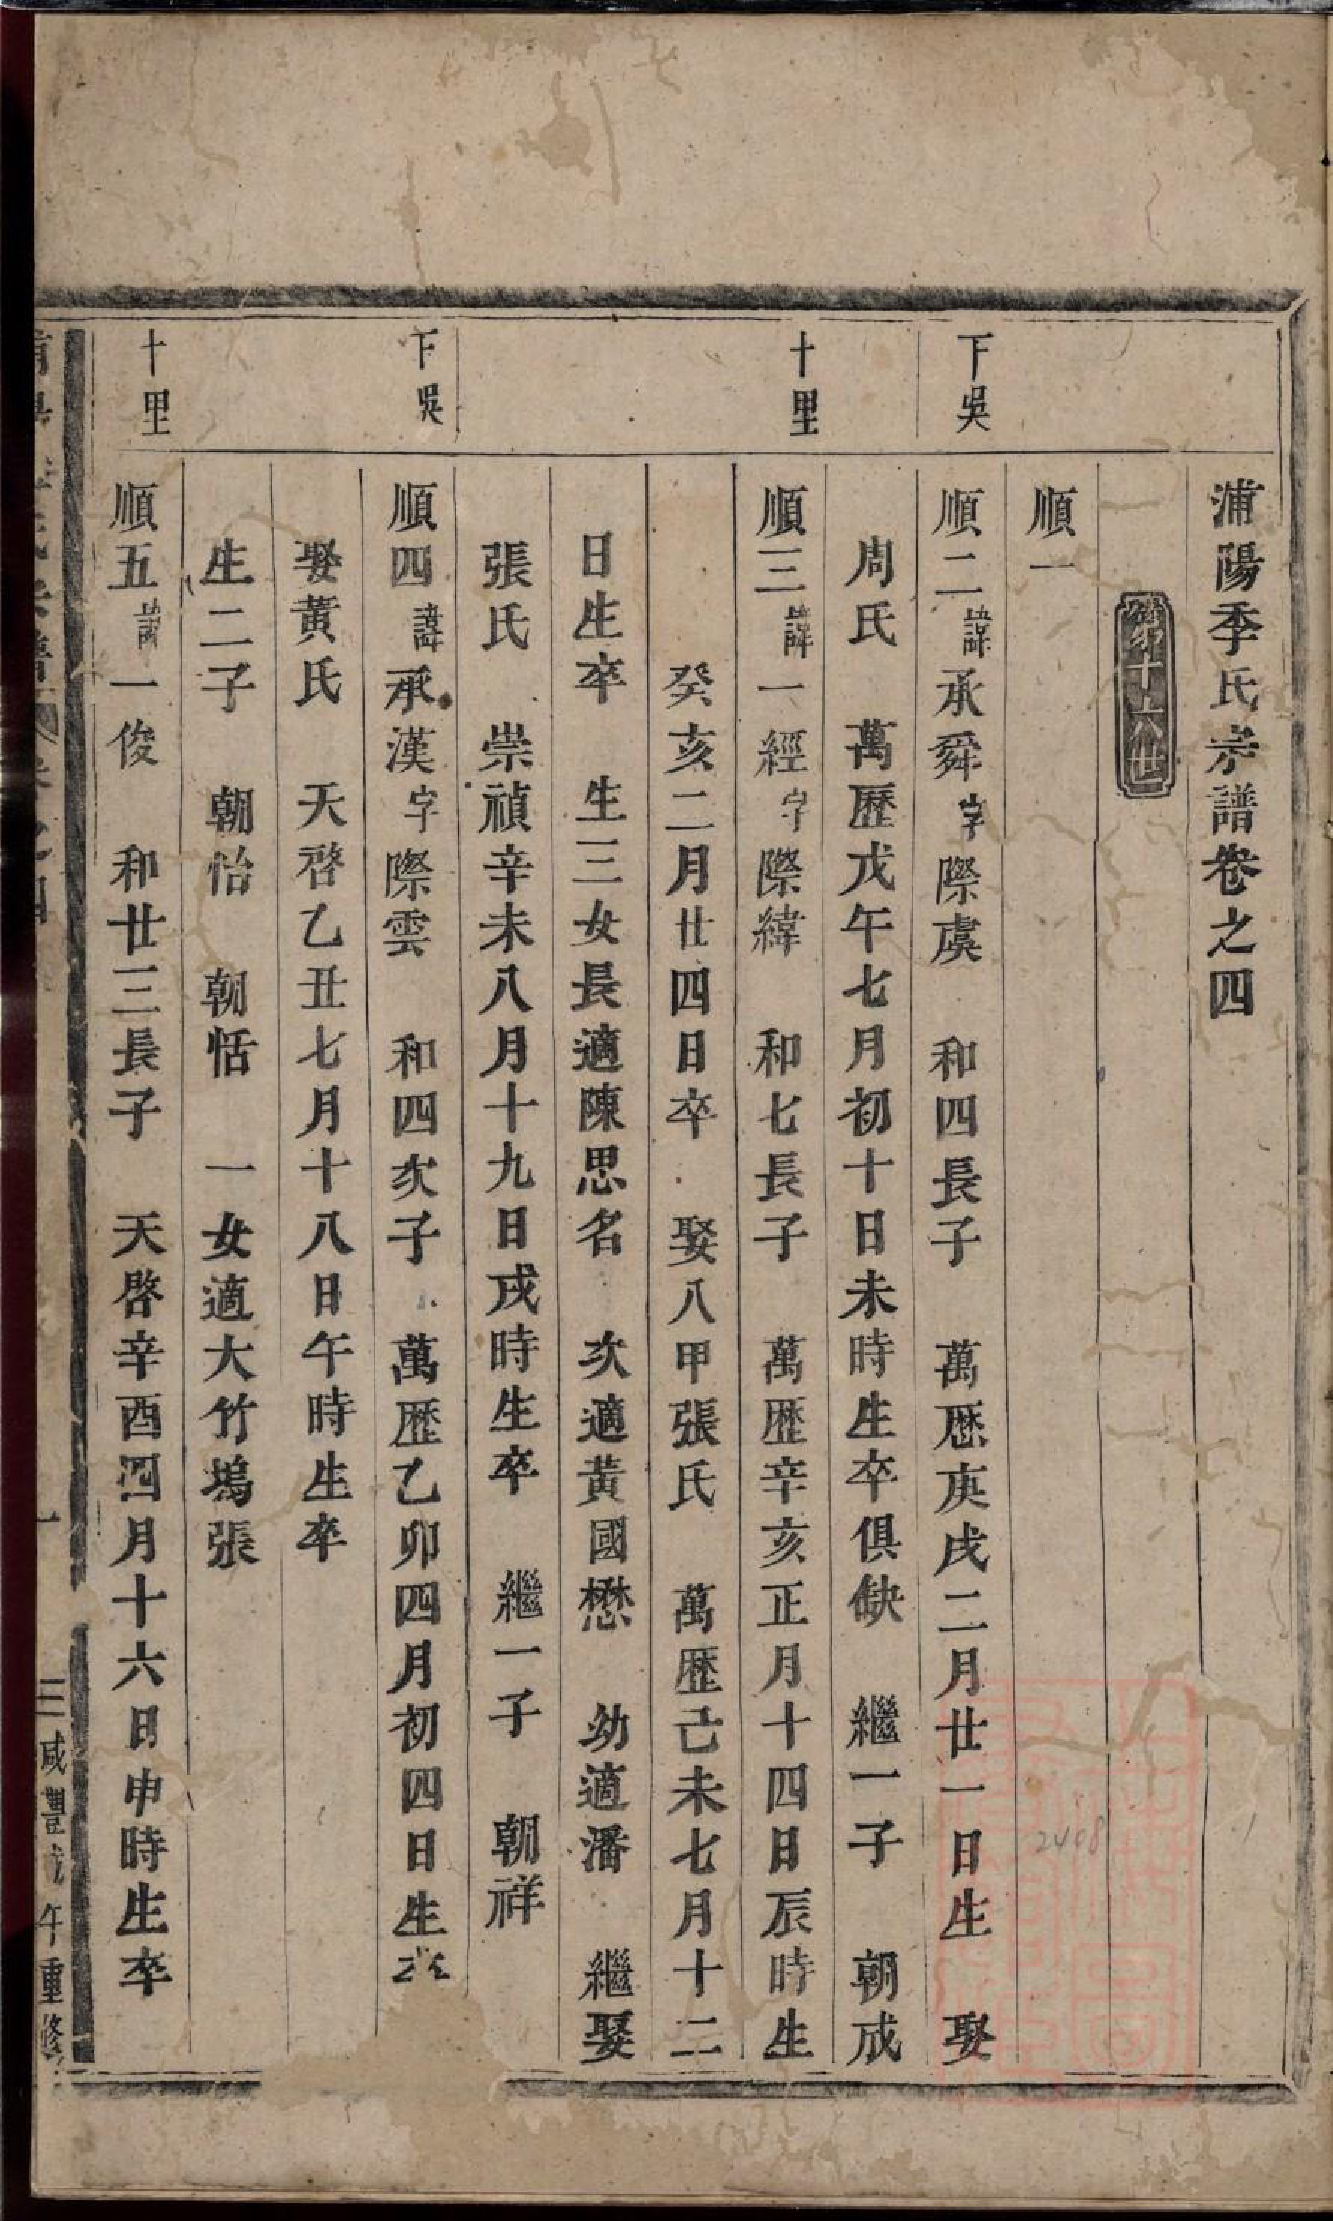 浦陽季氏宗譜卷之四
第十六世
順一
下吳
順二諱承舜字際虞　和四長子　萬歷庚戌二月廿一日生　娶
周氏　萬歷戊午七月初十日未時生卒俱缺　繼一子　朝成
十里
順三諱一經字際緯　和七長子　萬歷辛亥正月十四日辰時生
癸亥二月廿四日卒　娶八甲張氏　萬歷己未七月十二
日生卒　生三女長適陳思名　次適黃國懋　幼適潘　繼娶
張氏　崇禎辛未八月十九日戌時生卒　繼一子　朝祥
下吳
順四諱承漢字際雲　和四次子　萬歷乙卯四月初四日生
娶黃氏　天啓乙丑七月十八日午時生卒
生二子　朝怡　朝恬　一女適大竹塢張
十里
順五諱一俊　和廿三長子　天啓辛酉四月十六日申時生卒
之四
一
咸豐戊午重修
2408